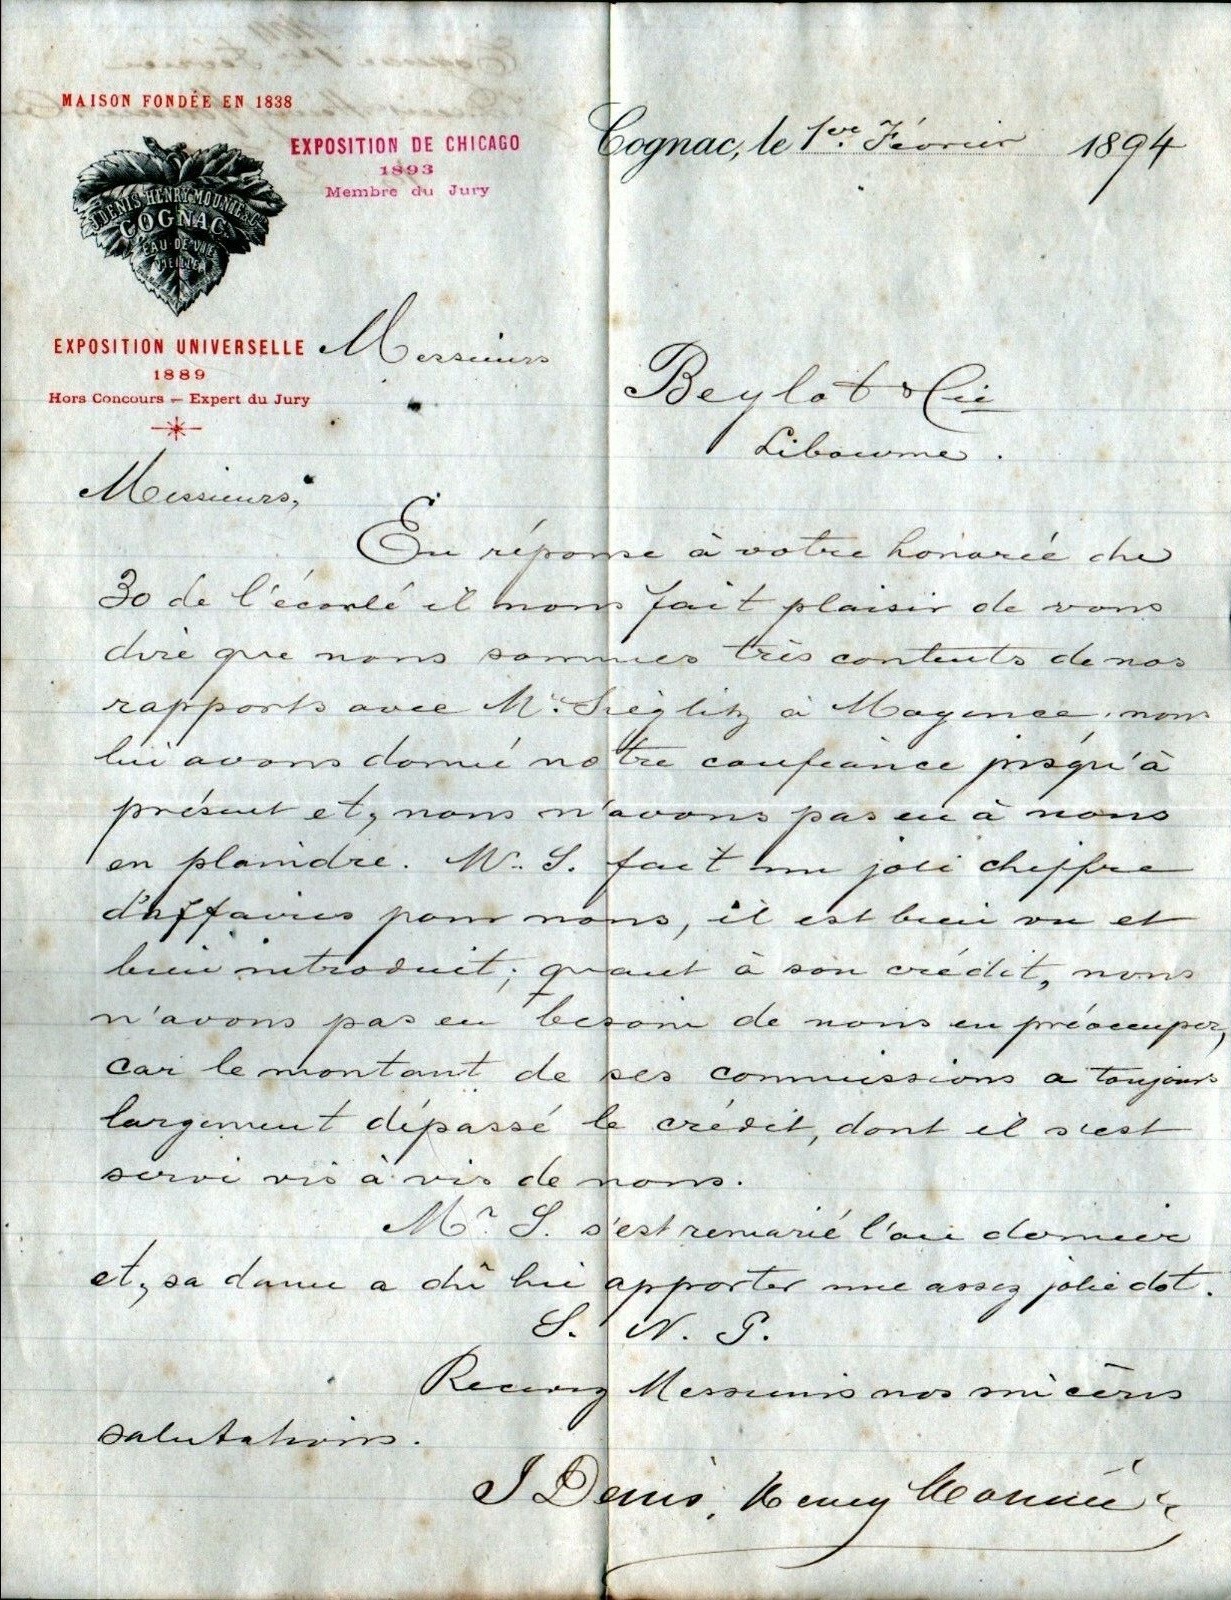 MAISON FONDÉE EN 1838
J. DENIS HENRY MOUNIE & Co
COGNAC
EAU-DE-VIE
VIEILLE
EXPOSITION DE CHICAGO
1893
Membre du Jury
Cognac, le 1er. Février 1894
EXPOSITION UNIVERSELLE
1889
Hors Concours — Expert du Jury
Messieurs
Beylot & Cie
Libourne.
Messieurs,
En réponse à votre honorée du
30 de l'écoulé il nous fait plaisir de vous
dire que nous sommes très contents de nos
rapports avec Mr. Siéglitz à Mayence, nous
lui avons donné notre confiance jusqu'à
présent et, nous n'avons pas eu à nous
en plaindre. Mr. S. fait un joli chiffre
d'affaires pour nous, il est bien vu et
bien introduit; quant à son crédit, nous
n'avons pas eu besoin de nous en préoccuper,
car le montant de ses commissions a toujours
largement dépassé le crédit, dont il s'est
servi vis à vis de nous.
Mr. S. s'est remarié l'an dernier
et, sa dame a dû lui apporter une assez jolie dot.
S. N. G.
Recevez Messieurs nos sincères
salutations.
J Denis, Henry Mounié